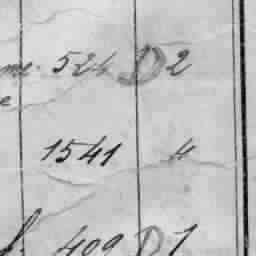 me. 524 D 2
e
1541 "
f. 409 D 1